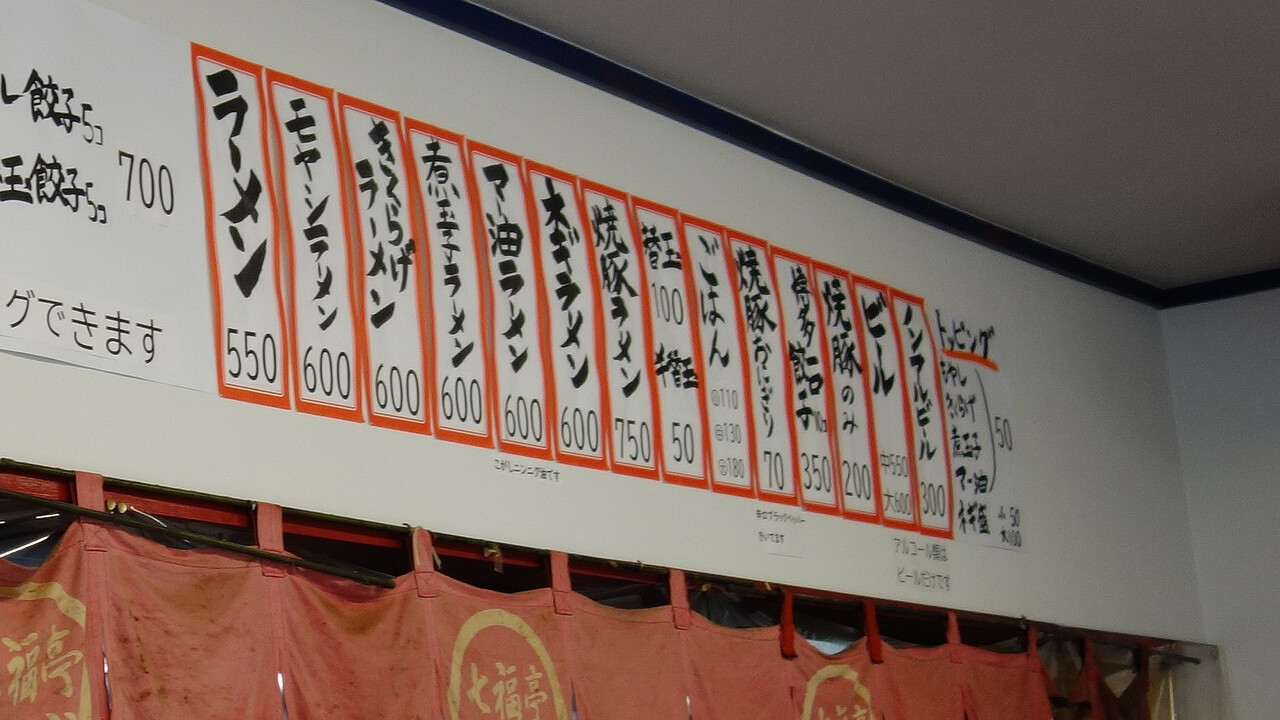 餃子5コ
玉餃子5コ
700
グできます
ラーメン
550
モヤシラーメン
600
きくらげラーメン
600
煮玉子ラーメン
600
マー油ラーメン
600
こがしニンニク油です
ネギラーメン
600
焼豚ラーメン
750
替玉
100
半替玉
50
ごはん
小110
中130
大180
焼豚おにぎり
70
辛口ブラックペッパー
きいてます
博多一口餃子10コ
350
焼豚のみ
200
ビール
中550
大600
ノンアルビール
300
アルコール類は
ビールだけです
トッピング
もやし
きくらげ
煮玉子
マー油
50
ネギ
小50
大100
七福亭
七福亭